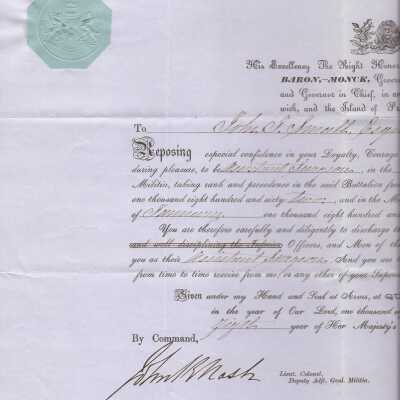 His Excellency The Right Honor
BARON MONCK, Governo
and Governor in Chief, in an
wick, and the Island of Pr
To John F. Smith, Esqui
Reposing especial confidence in your Loyalty, Courage
during pleasure, to be Assistant Surgeon, in the
Militia, taking rank and precedence in the said Battalion from
one thousand eight hundred and sixty two, and in the M
of January one thousand eight hundred and
You are therefore carefully and diligently to discharge th
and well disciplining the Inferior Officers, and Men of th
you as their Assistant Surgeon And you are t
from time to time receive from me, or any other of your Superio
Given under my Hand and Seal at Arms, at
in the year of Our Lord, one thousand
year of Her Majesty's
By Command,
John B Nash
Lieut. Colonel,
Deputy Adjt. Genl. Militia.